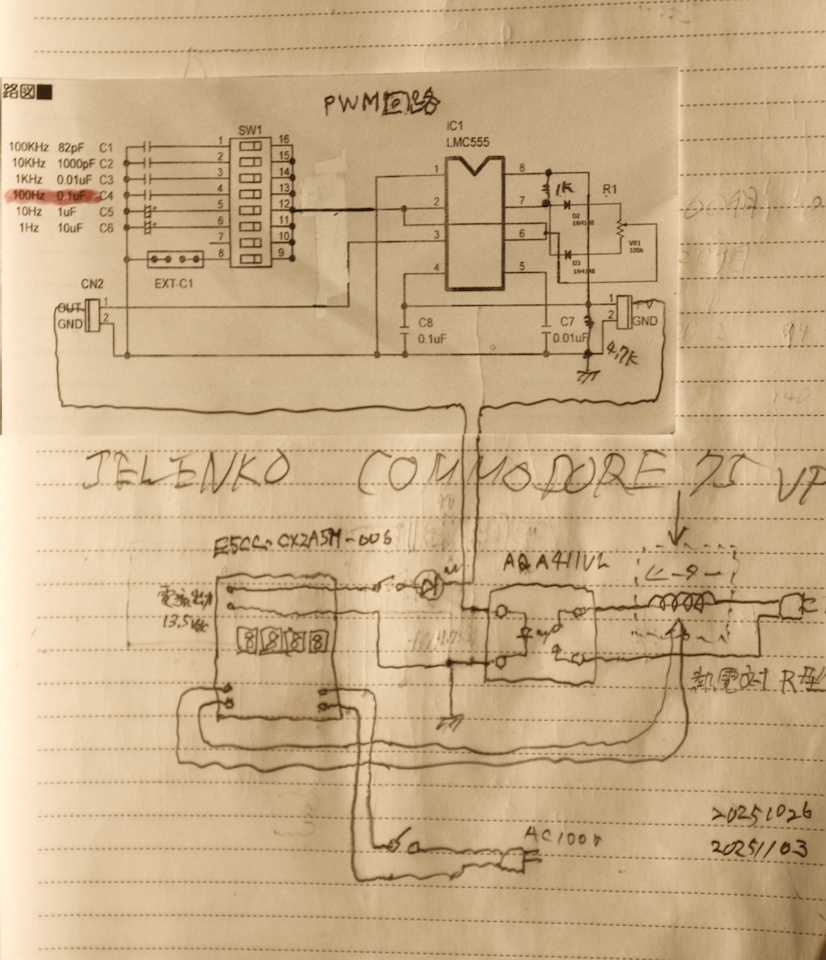 路図■
PWM回路
SW1
IC1
LMC555
100KHz 82pF C1 1 16
10KHz 1000pF C2 2 15
1KHz 0.01uF C3 3 14
100Hz 0.1uF C4 4 13
10Hz 1uF C5 5 12
1Hz 10uF C6 6 11
7 10
8 9
EXT-C1
1 8
2 7
3 6
4 5
1K
R1
D2
1N4148
D3
1N4148
VR1
100k
CN2
OUT 1
GND 2
C8
0.1uF
C7
0.01uF
1
2 GND
4.7K
JELENKO COMMODORE 75 VP
E5CC-CX2A5M-006
AQA411VL
ヒーター
8888
熱電対 R型
AC100V
20251026
20251103